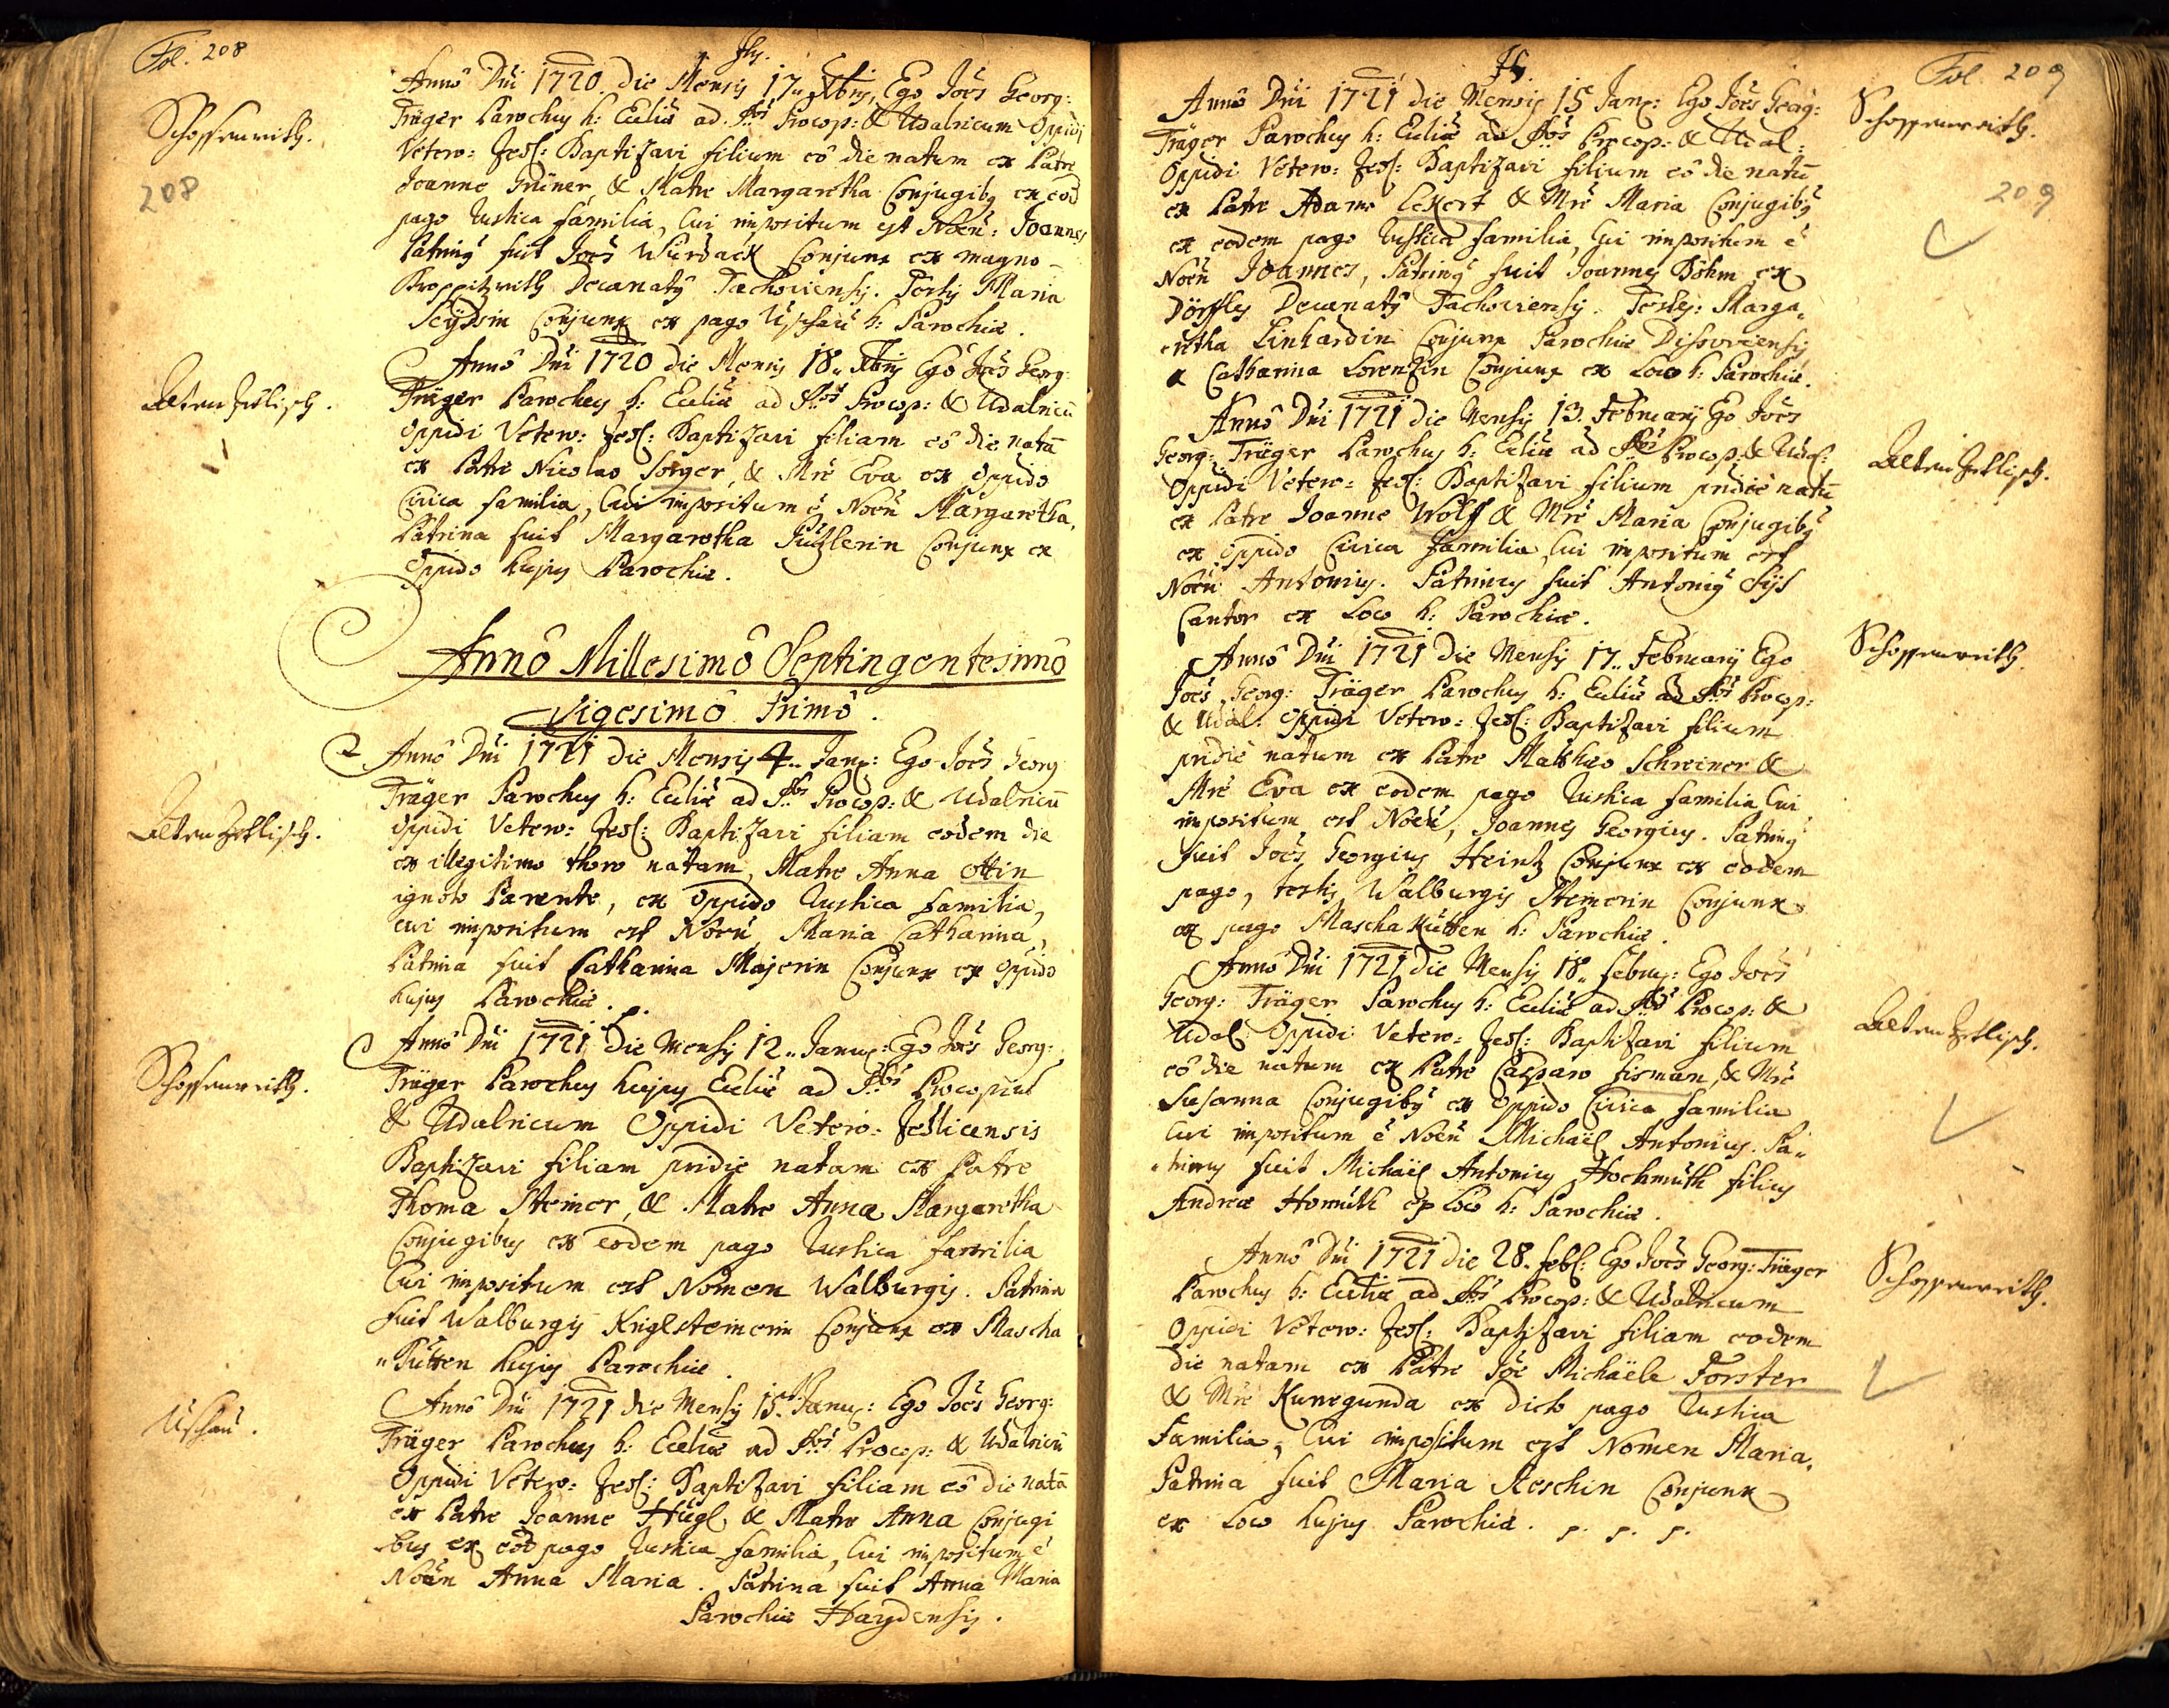 Fol. 208
Jhs.
Schossenreith.
208
Anno Dni 1720. die Mensis 17. Xbris, Ego Joes Georg:
Träger Parochus h: Ecclîæ ad SStos Procop: & Udalricum Oppidi
Vetero: Zedl: Baptizavi filium eô die natum ex Patre
Joanne Grüner, & Matre Margaretha Conjugibus ex eod
pago Rustica familia, Cui impositum est Noen: Joannes
Patrinus fuit Joes Würdack Conjunx ex magno
Kroppitzreith Decanatus Tachoviensis. Testis Maria
Seÿdlin Conjunx ex pago Uschau h: Parochiæ.
Alten Zetlisch.
Anno Dni 1720 die Mensis 18. Xbris Ego Joes Georg:
Träger Parochus h: Ecclîæ ad SStos Procop: & Udalricū
Oppidi Vetero: Zedl: Baptizavi filiam eô die natā
ex Patre Nicolao Sorger, & Mrê Eva ex Oppido
Civica familia, Cui impositum ê Noen Margaretha,
Patrina fuit Margaretha Conjunx ex
Oppido hujus Parochiæ.
Anno Millesimo Septingentesimo
Vigesimo Primo.
Alten Zetlisch.
Anno Dni 1721 die Mensis 4. Janr: Ego Joes Georg
Träger Parochus h: Ecclîæ ad SStos Procop: & Udalricū
Oppidi Vetero: Zedl: Baptizavi filiam eodem die
ex illegitimo thoro natam, Matre Anna Ottin
ignoto Parente, ex Oppido Rustica familia,
cui impositum est Noen Maria Catharina,
Patrina fuit Catharina Majerin Conjunx ex Oppido
hujus Parochiæ.
Schossenreith.
Anno Dni 1721 die Mensis 12. Janur: Ego Joes Georg:
Träger Parochus hujus Ecclîæ ad SStos Procopium
& Udalricum Oppidi Vetero: Zedlicensis
Baptizavi filiam pridie natam ex Patre
Thoma Steiner, & Matre Anna Margaretha
Conjugibus ex eodem pago Rustica familia
Cui impositum est Nomen Walburgis. Patrina
fuit Walburgis Kriglsteinerin Conjunx ex Mascha
"Kütten hujus Parochiæ.
Uschau.
Anno Dni 1721 die Mensis 15. Janur: Ego Joes Georg:
Träger Parochus h: Ecclîæ ad SStos Procop: & Udalricū
Oppidi Vetero: Zedl: Baptizavi filiam eô die natā
ex Patre Joanne Hügl & Matre Anna Conjugi
bus ex eod pago Rustica familia, Cui impositum ê
Noen Anna Maria. Patrina fuit Anna Maria
Parochiæ Haydensis.
Fol 209
Schossenreith.
209
Anno Dni 1721 die Mensis 15 Janr: Ego Joes Georg:
Träger Parochus h: Ecclîæ ad SStos Procop: & Udal:
Oppidi Vetero: Zedl: Baptizavi filium eô die natū
ex Patre Adamo Eckert & Mrê Maria Conjugibus
ex eodem pago Rustica familia, Cui impositum ê
Noen Joannes, Patrinus fuit Joannes Böhm ex
Dörfles Decanatus Tachoviensis. Testes: Marga,
retha Linhardin Conjunx Parochiæ
& Catharina Lorenzin Conjunx ex Loco h: Parochiæ.
Alten Zetlisch.
Anno Dni 1721 die Mensis 13. Februarÿ Ego Joes
Georg: Träger Parochus h: Ecclîæ ad SStos Procop: & Udal:
Oppidi Vetero: Zedl: Baptizavi filium pridiê natū
ex Patre Joanne Wolf & Mrê Maria Conjugibus
ex Oppido Civica familia, Cui impositum est
Noen Antonius. Patrinus fuit Antonius
Cantor ex Loco h: Parochiæ.
Schossenreith.
Anno Dni 1721 die Mensis 17. Februarÿ Ego
Joes Georg: Träger Parochus h: Ecclîæ ad SStos Procop:
& Udal: Oppidi Vetero: Zedl: Baptizavi filium
pridiê natum ex Patre Matthæo Schreiner &
Mrê Eva ex eodem pago Rustica familia Cui
impositum est Noen, Joannes Georgius. Patrinus
fuit Joes Georgius Heintz Conjunx ex eodem
pago, testis Walburgis Steinerin Conjunx
ex pago Maschakutten h: Parochiæ.
Alten Zetlisch.
Anno Dni 1721 die Mensis 18. Febrr: Ego Joes
Georg: Träger Parochus h: Ecclîæ ad SStos Procop: &
Udal: Oppidi Vetero: Zedl: Baptizavi filium
eô die natum ex Patre Casparo Fisman, & Mrê
Susanna Conjugibus ex Oppido Civica familia
Cui impositum ê Noen Michaël Antonius. Pa"
"trinus fuit Michaël Antonius Hochmuth filius
Andreæ Homuth ex Loco h: Parochiæ.
Schossenreith.
Anno Dni 1721 die 28. Febr: Ego Joes Georg: Träger
Parochus h: Ecclîæ ad SStos Procop: & Udalricum
Oppidi Vetero: Zedl: Baptizavi filiam eodem
die natam ex Patre Joe Michaële Forster
& Mrê Kunegunda ex dicto pago Rustica
Familia, Cui impositum est Nomen Maria.
Patrina fuit Maria Reschin Conjunx
ex Loco hujus Parochiæ.